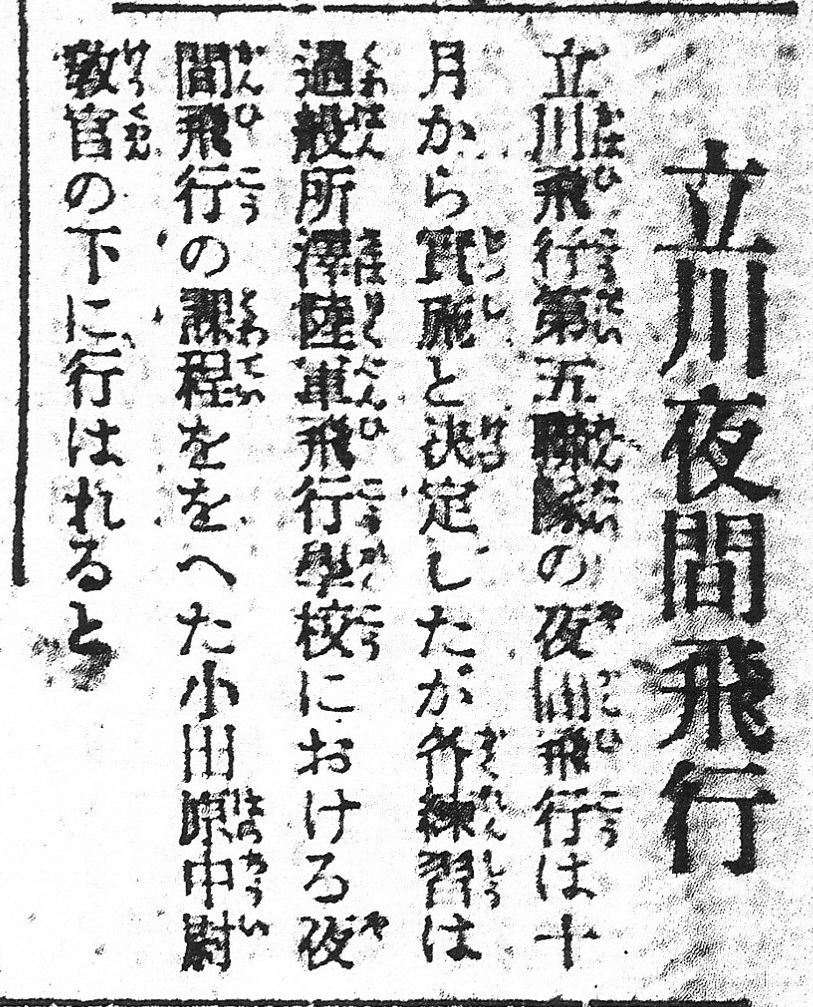 立川夜間飛行
立川飛行第五聯隊の夜間飛行は十
月から實施と決定したが各練習は
過般所澤陸軍飛行學校における夜
間飛行の課程ををへた小田原中尉
敎官の下に行はれると